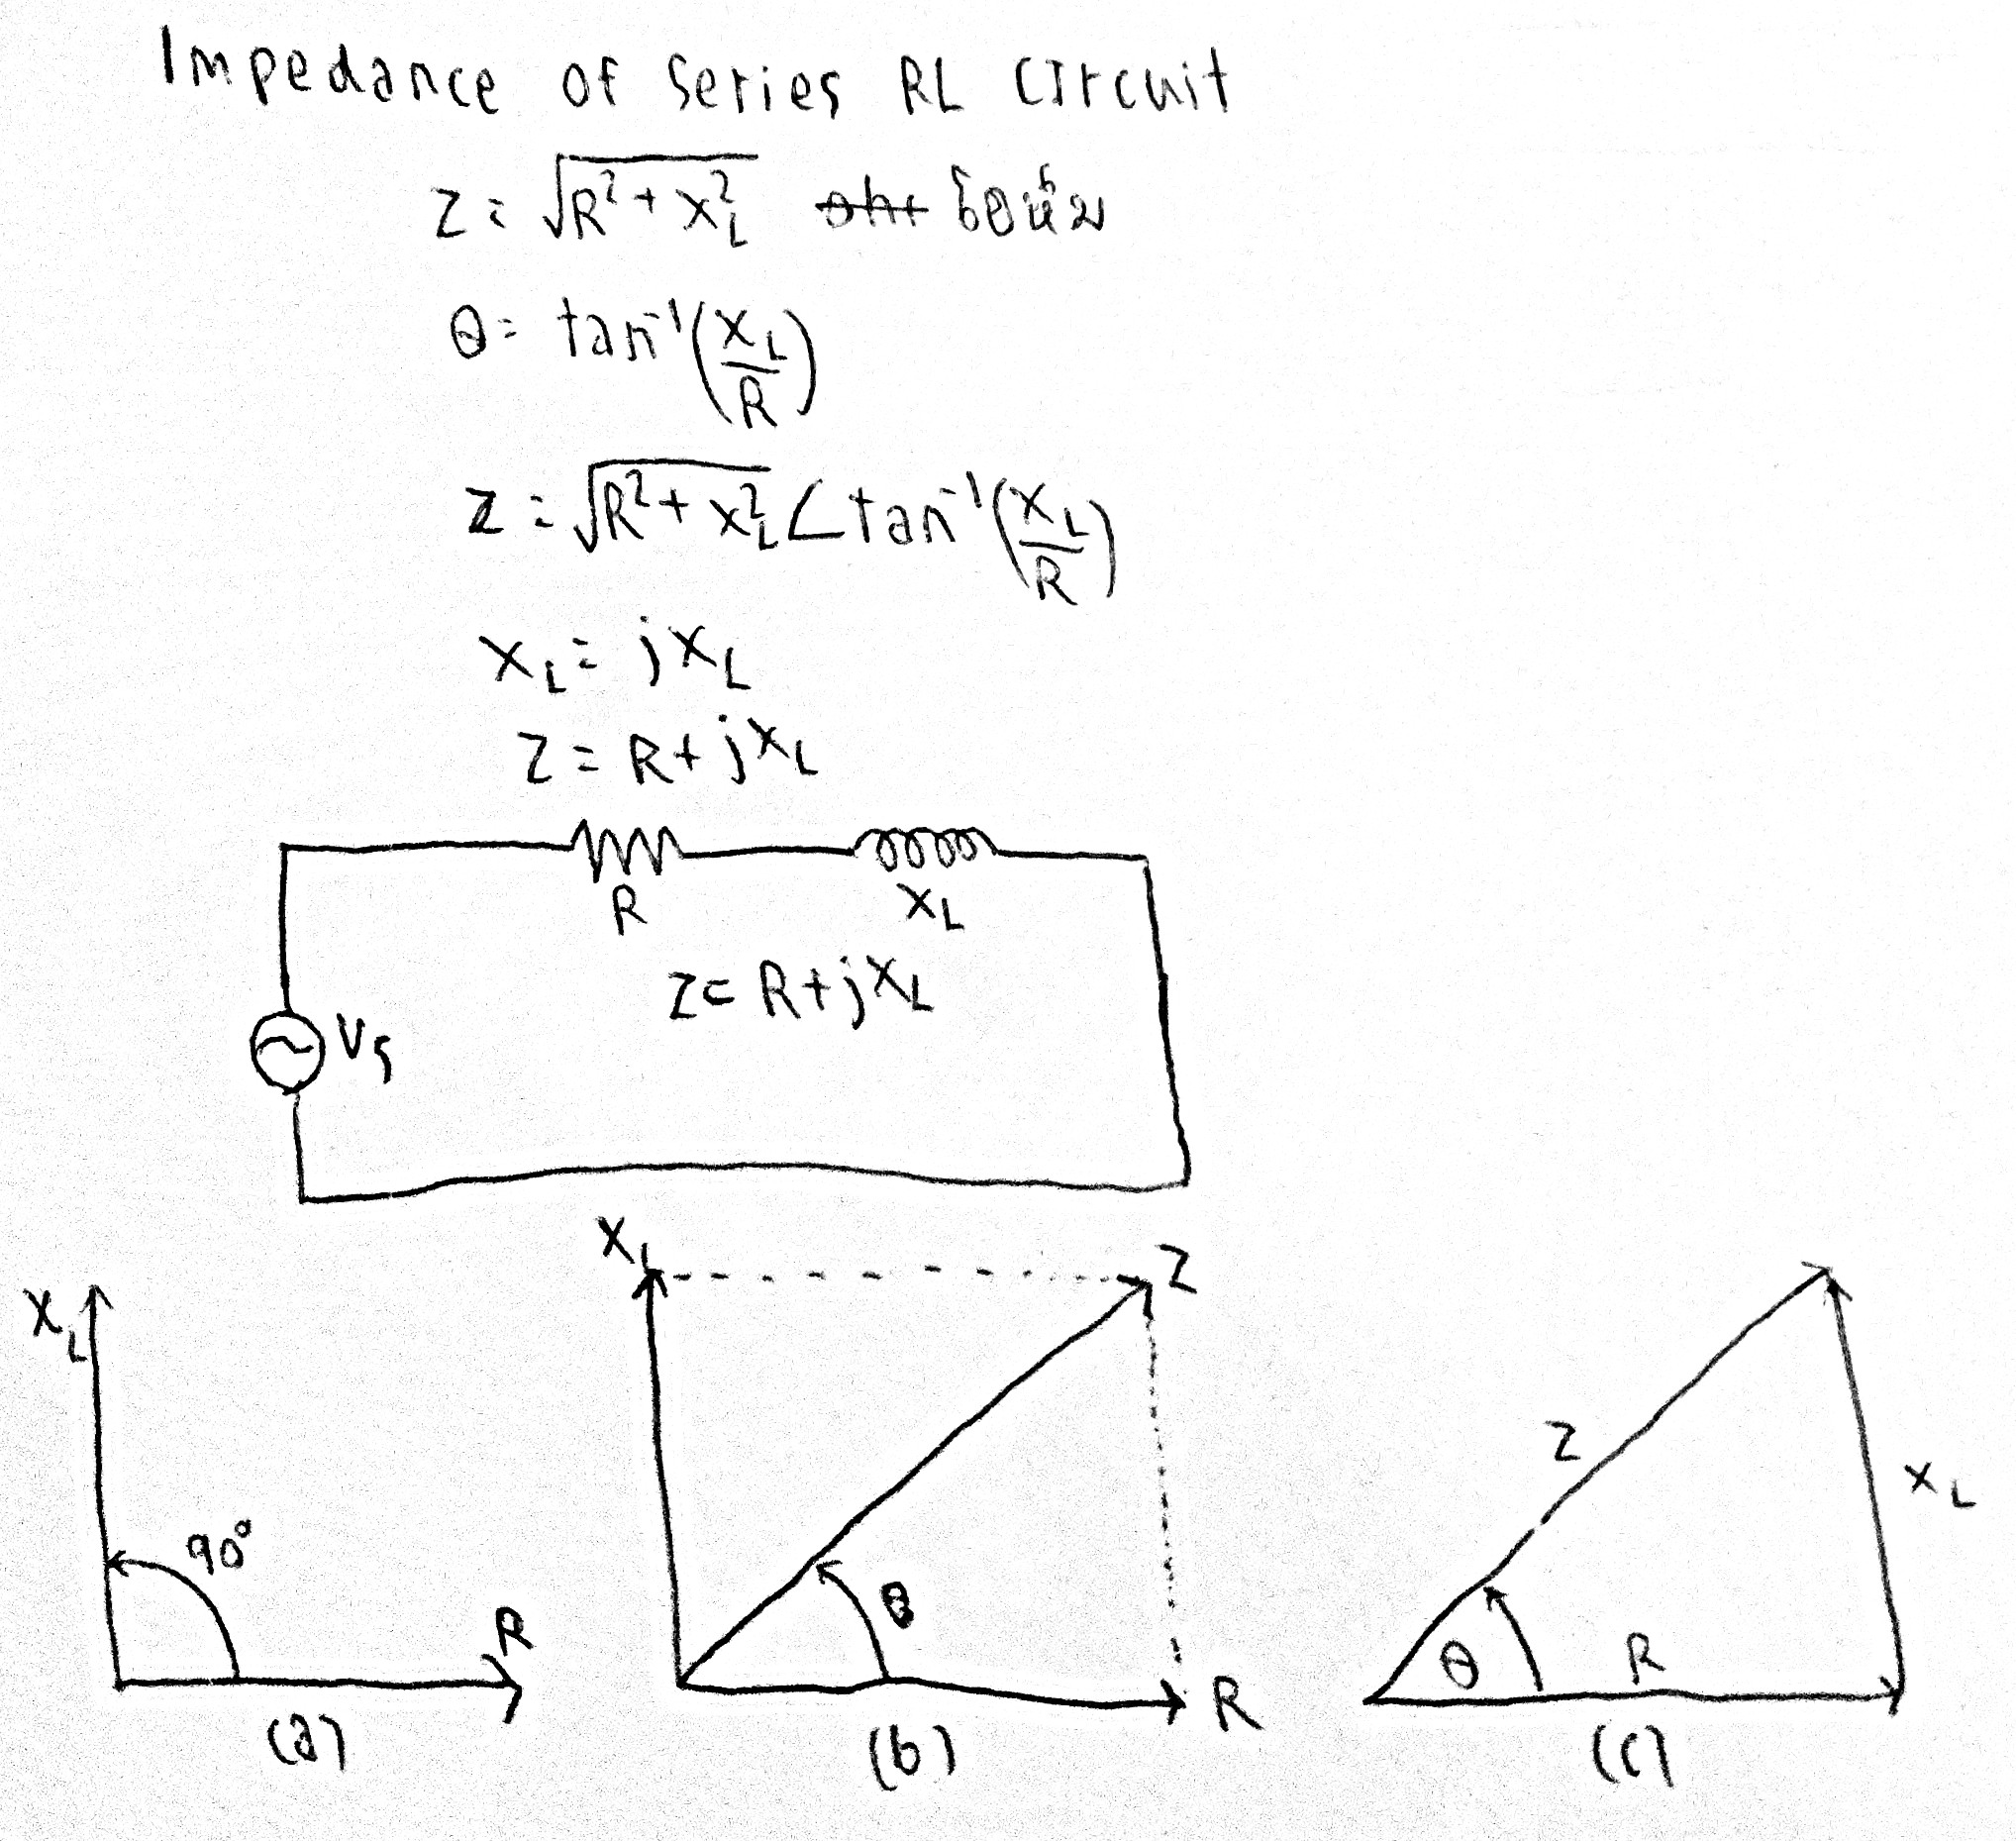 Impedance of Series RL Circuit
Z = √R² + X_L² โอห์ม
θ = tan⁻¹(X_L/R)
Z = √R² + X_L² ∠ tan⁻¹(X_L/R)
X_L = jX_L
Z = R + jX_L
R X_L
Z = R + jX_L
V_S
X_L 90° R
(a)
X_L Z θ R
(b)
Z X_L θ R
(c)